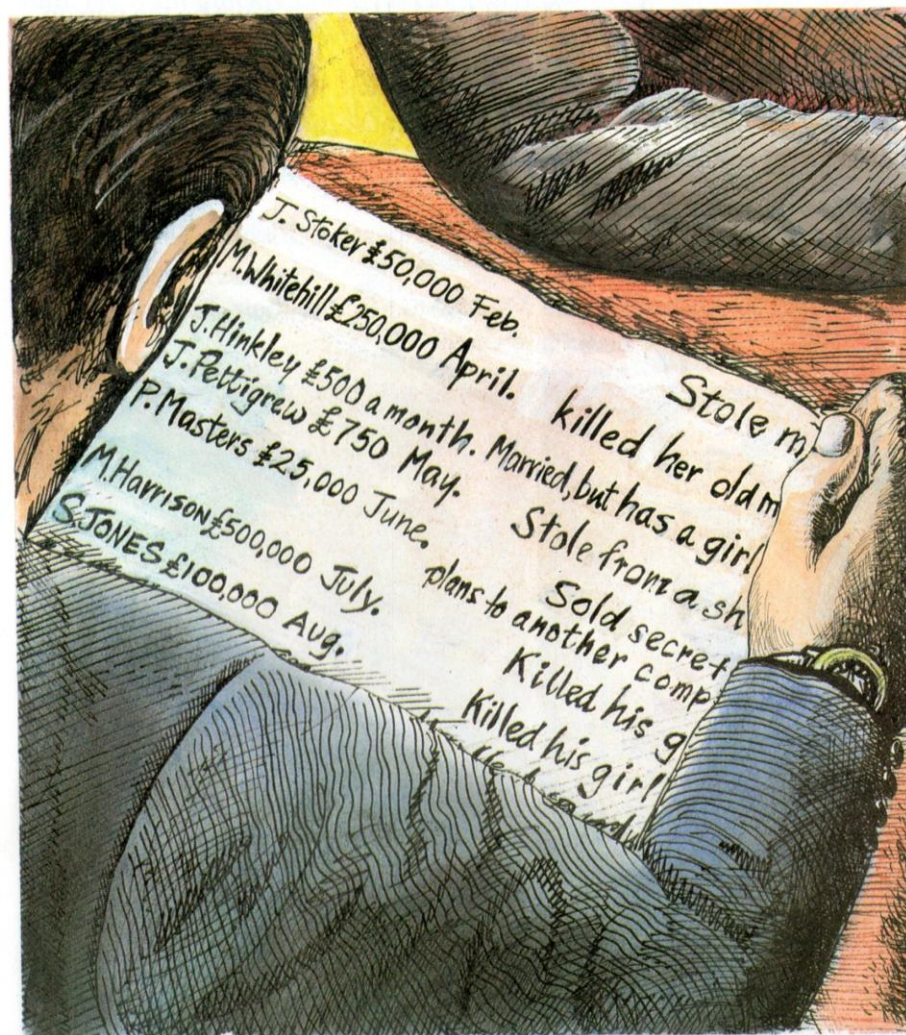 J. Stoker £50,000 Feb. Stole m
M. Whitehill £250,000 April. killed her old m
J. Hinkley £500 a month. Married, but has a girl
J. Pettigrew £750 May. Stole from a sh
P. Masters £25,000 June. Sold secret
plans to another comp
M. Harrison £500,000 July. Killed his g
S. JONES £100,000 Aug. Killed his girl